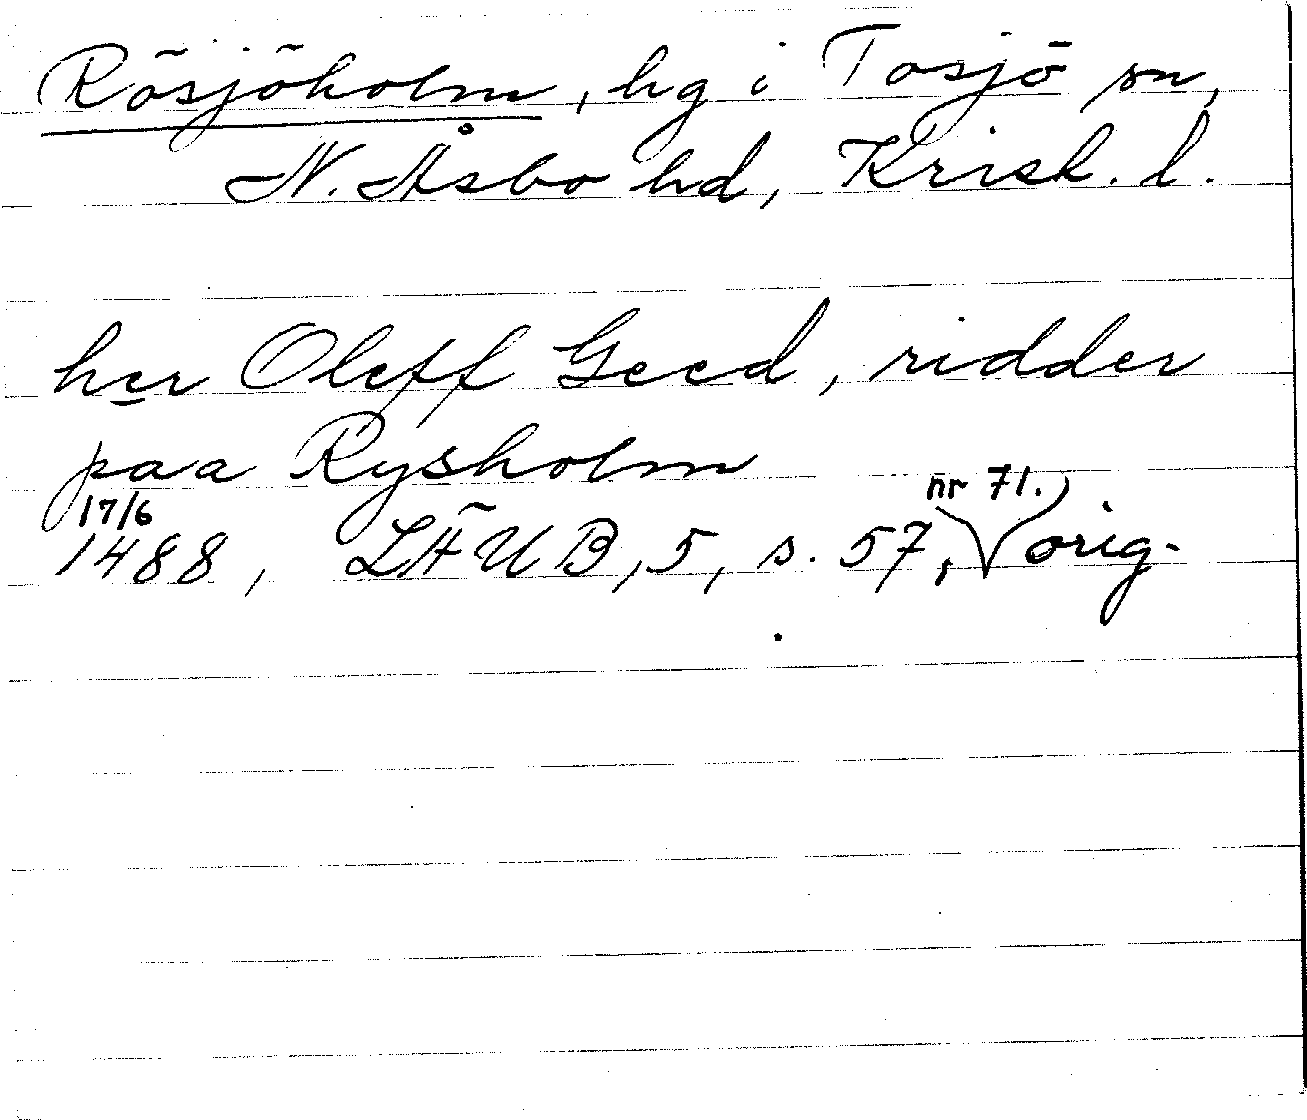 Rösjöholm, hg i Tosjö sn,
N. Åsbo hd, Krist. l.
her Oleff Geed, ridder
paa Rysholm
17/6
1488, LÄUB, 5, s. 57, nr 71. orig.